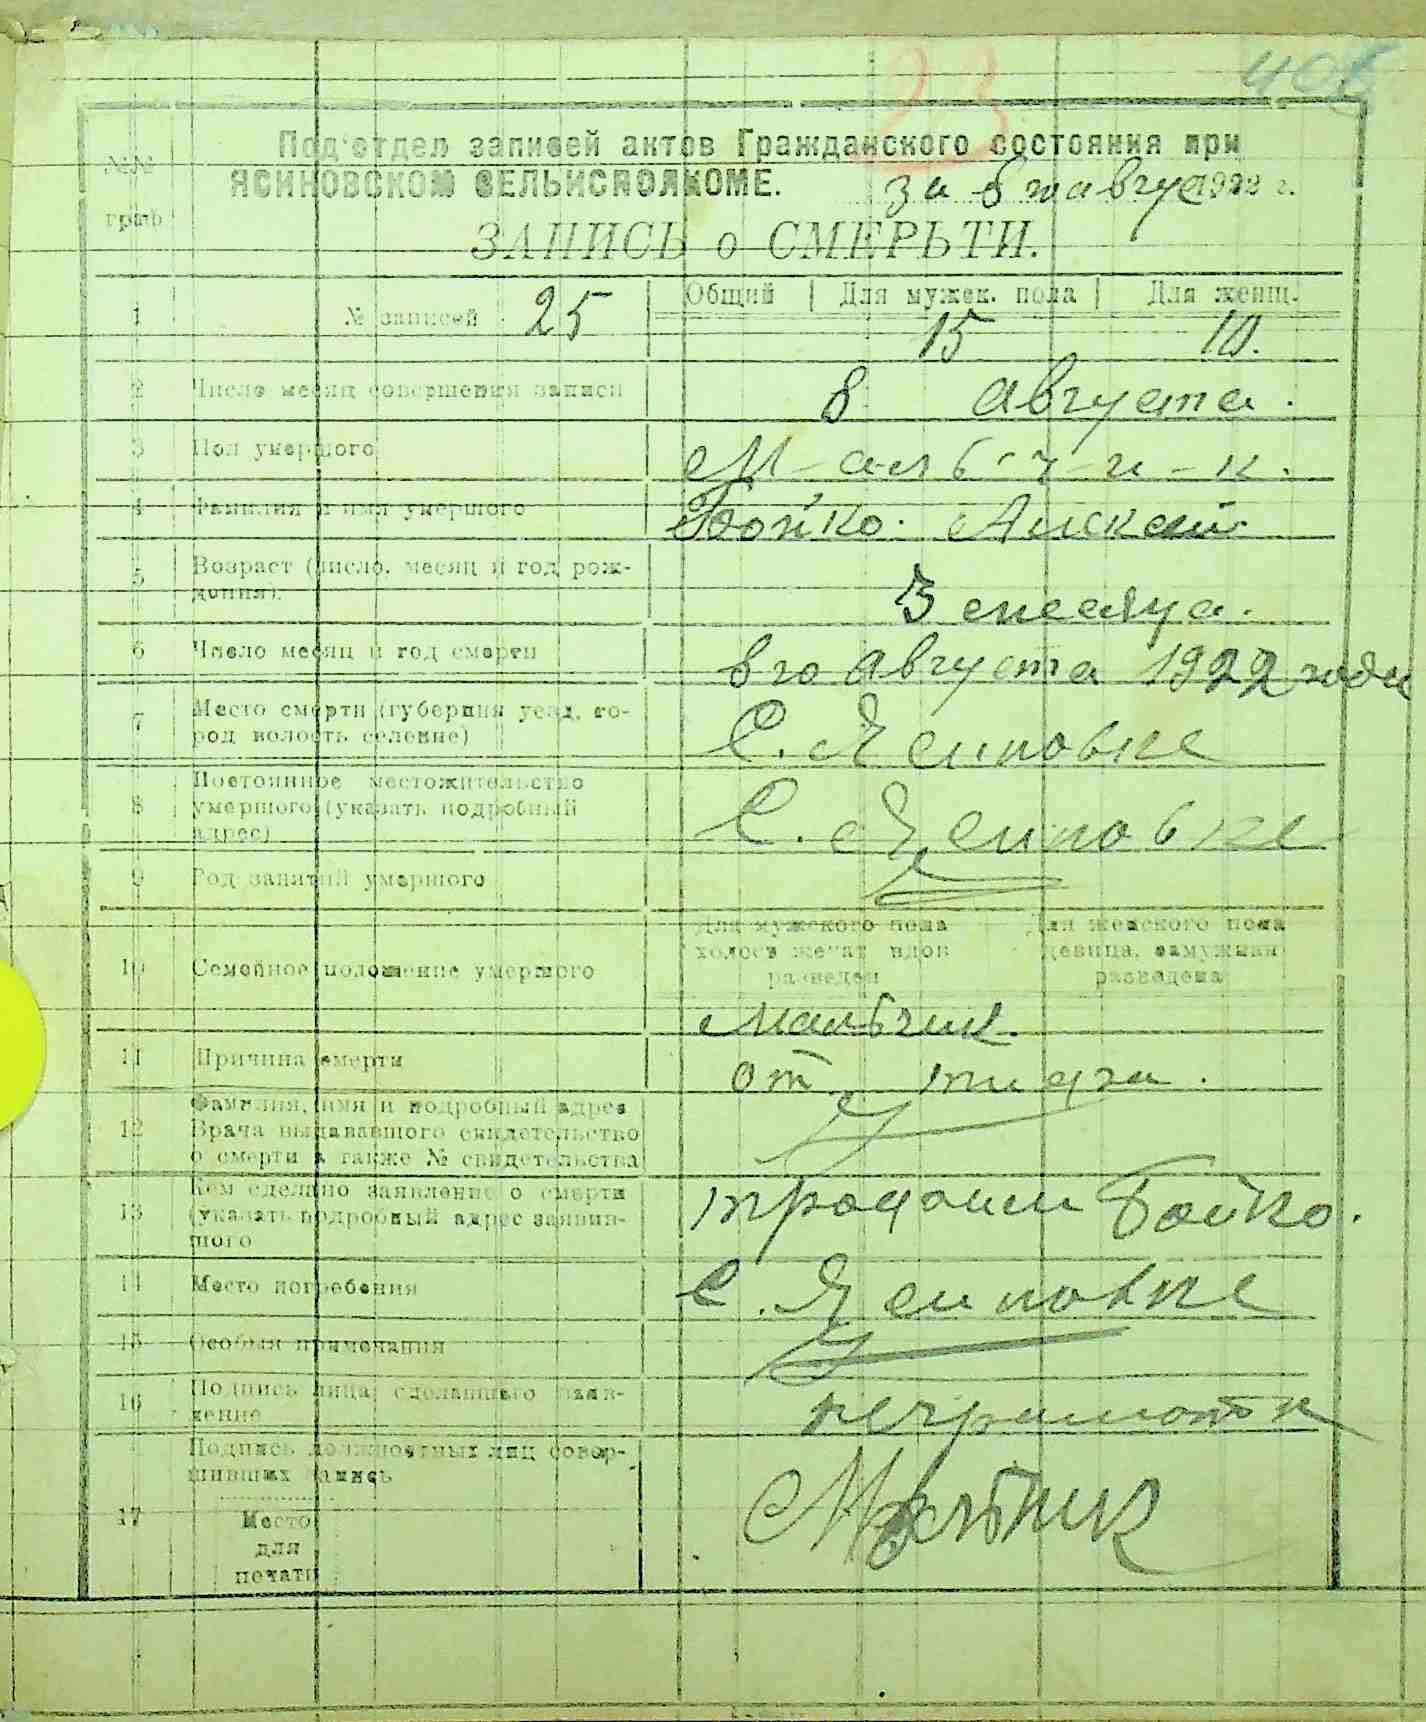 23
406
Под'отдел записей актов Гражданского состояния при
ЯСИНОВСКОМ СЕЛЬИСПОЛКОМЕ. за 8 го август 1922 г.
№№ граф
ЗАПИСЬ о СМЕРЬТИ.
1 № записей 25 Общий | Для мужск. пола | Для женщ.
15 10.
2 Число месяц совершения записи 8 Августа.
3 Пол умершого М-аль-ч-и-к.
4 Фамилия и имя умершого Бойко. Алексей
5 Возраст (число, месяц и год рож-
дения). 3 месяца.
6 Число месяц и год смерти 8 го Августа 1922 года
7 Место смерти (губерния уезд, го-
род волость селение) С. Ясиновке
8 Постоянное местожительство
умершого (указать подробный
адрес) С. Ясиновке
9 Род занятий умершого
10 Семейное положение умершого
Для мужского пола
холост женат вдов
разведен
Для женского пола
девица, замужняя
разведена
Мальчик.
11 Причина смерти от
12 Фамилия, имя и подробный адрес
Врача выдававшого свидетельство
о смерти а также № свидетельства
13 Кем сделано заявление о смерти
(указать подробный адрес заявив-
шого Бойко.
14 Место погребения С. Ясиновке
15 Особыя примечания
16 Подпись лица, сделавшего заяв-
ление неграмотн
17 Подпись должностных лиц совер-
шивших запись
Место
для
печати